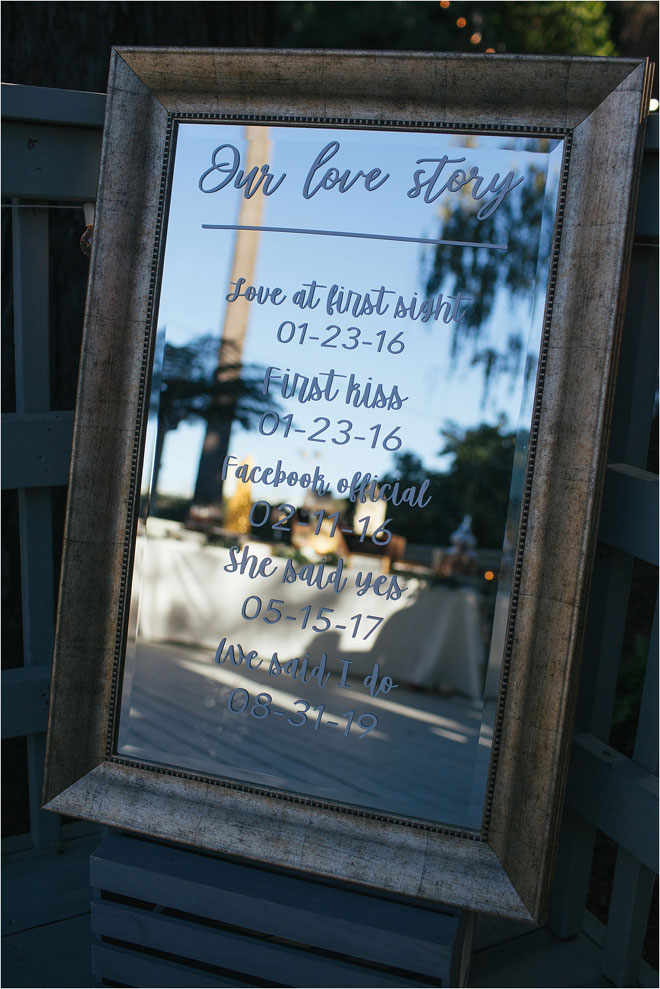 Our love story
Love at first sight
01-23-16
First kiss
01-23-16
Facebook official
02-11-16
She said yes
05-15-17
We said I do
08-31-19